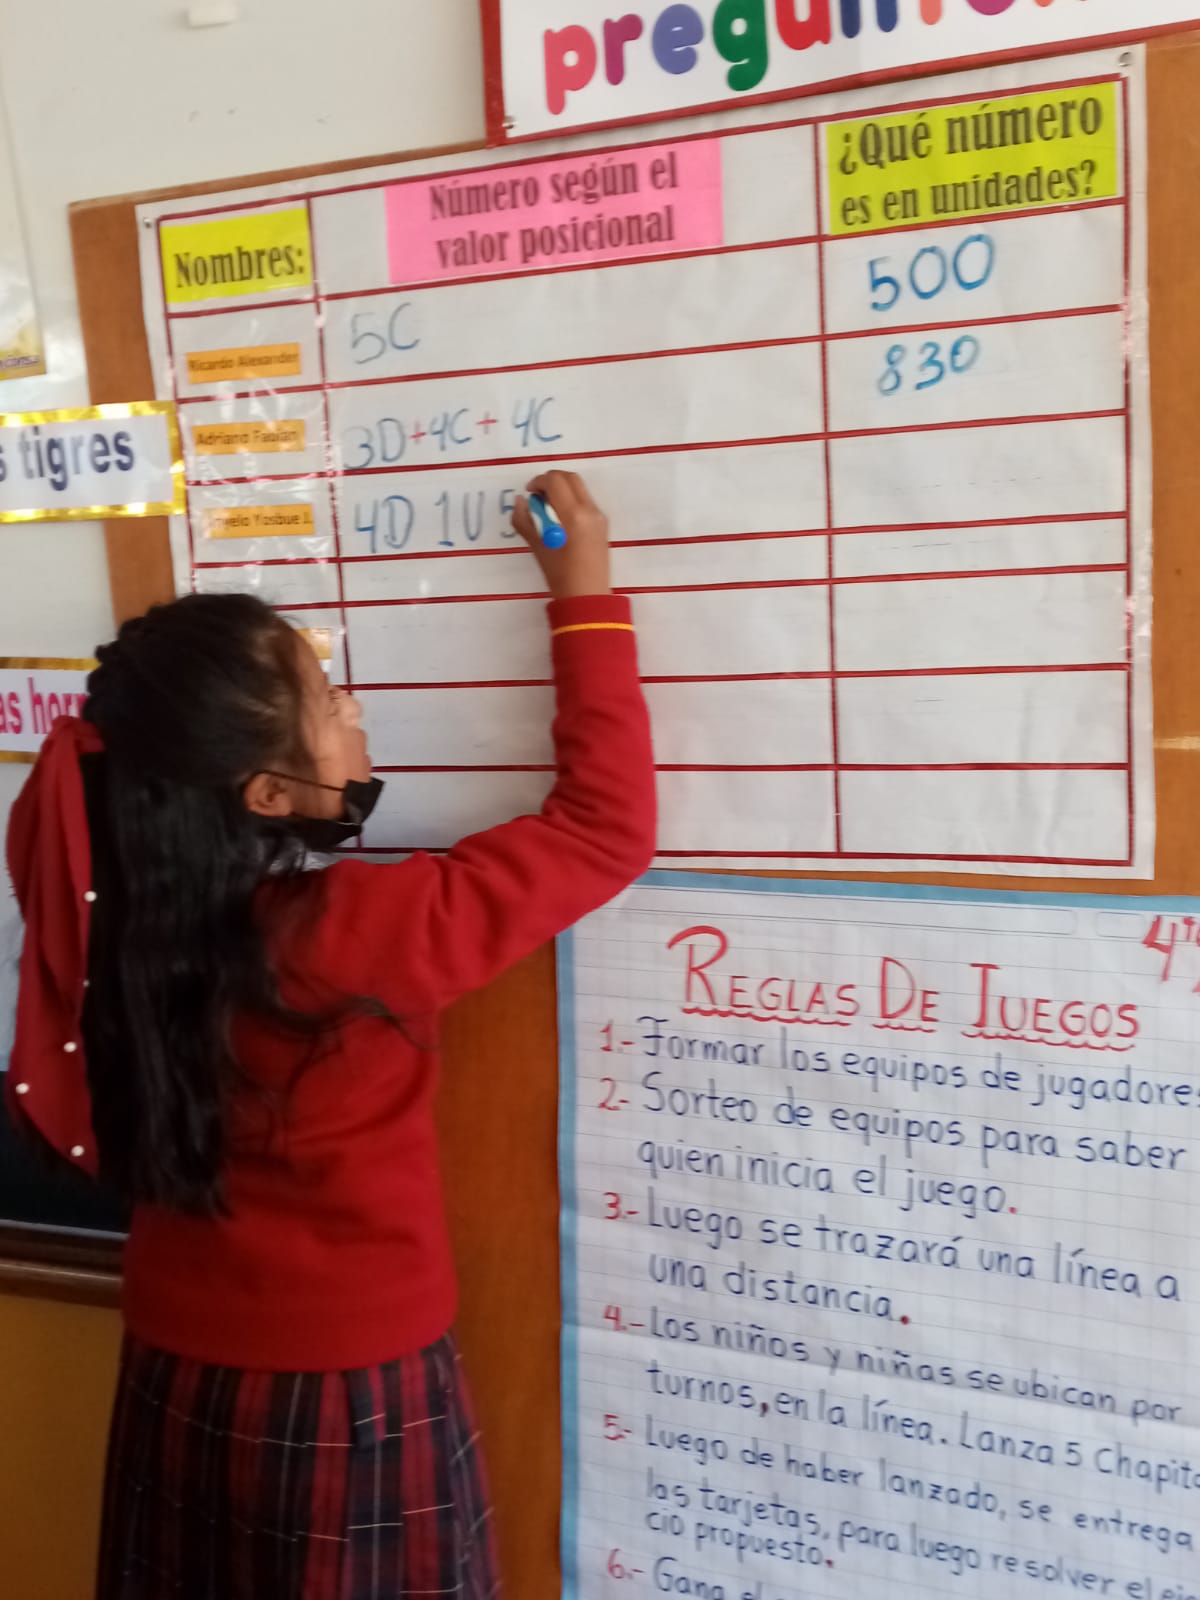 Nombres:
Número según el
valor posicional
¿Qué número
es en unidades?
Ricardo Alexander
5C
500
Adriano Fabian
3D+4C+ 4C
830
4D 1U 5
tigres
as
REGLAS DE JUEGOS
1.- Formar los equipos de jugadores
2.- Sorteo de equipos para saber
quien inicia el juego.
3.- Luego se trazará una línea a
una distancia.
4.- Los niños y niñas se ubican por
turnos, en la línea. Lanza 5 Chapita
5.- Luego de haber lanzado, se entrega
las tarjetas, para luego resolver el
cio propuesto.
6.- Gana